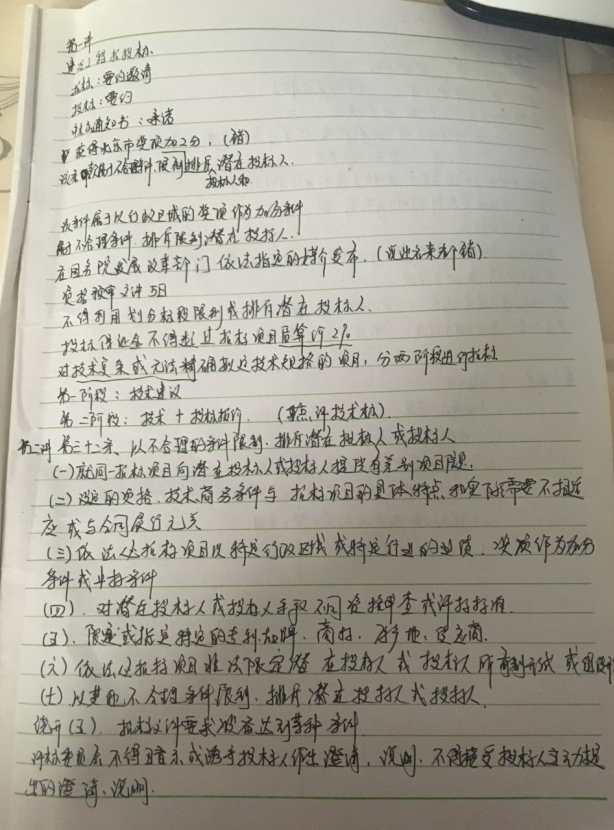 第一讲
建设工程招投标
招标：要约邀请
投标：要约
中标通知书：承诺
获得北京市奖项加2分，(错)
不合理条件、限制排斥潜在投标人
投标人和
该条件属于以行政区域的奖项作为加分条件
用不合理条件 排斥限制潜在投标人.
在国务院发展改革部门依法指定的媒介发布.
资格预审文件 5日
不得利用划分标段限制或排斥潜在投标人.
投标保证金不得超过招标项目估算价2%
对技术复杂或无法精确拟定技术规格的项目，分两阶段进行招标
第一阶段：技术建议
第二阶段：技术+投标报价 (评技术标)
第二讲 第三十二条、以不合理的条件限制、排斥潜在投标人或投标人
(一)就同一招标项目向潜在投标人或投标人提供有差别项目信息.
(二)设定的资格、技术商务条件与招标项目的具体特点和实际需要不相适
应或与合同履行无关
(三)依法必招标项目以特定行政区域或特定行业的业绩、奖项作为加分
条件或中标条件
(四).对潜在投标人或投标人采取不同资格审查或评标标准.
(五).限定或指定特定的专利品牌、商标、原产地、供应商.
(六)依法必招标项目非法限定潜在投标人或投标人所有制形式或组织
(七)以其他不合理条件限制、排斥潜在投标人或投标人.
(五).招标文件要求 达到 条件
评标委员会不得暗示或诱导投标人作出澄清，说明.不得接受投标人主动提
出的澄清、说明.